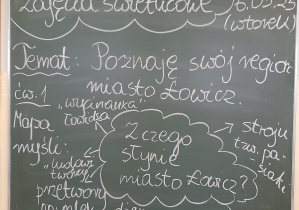 Zajęcia świetlicowe
16.09.25
(wtorek)
Temat: Poznaję swój region
miasto Łowicz.
ćw. 1 "wycinanka"
łowicka
Mapa
myśli:
Z czego
słynie
miasto Łowicz?
stroju
tzw. pa-
siaki
"ludowi
twórcy"
przetwory